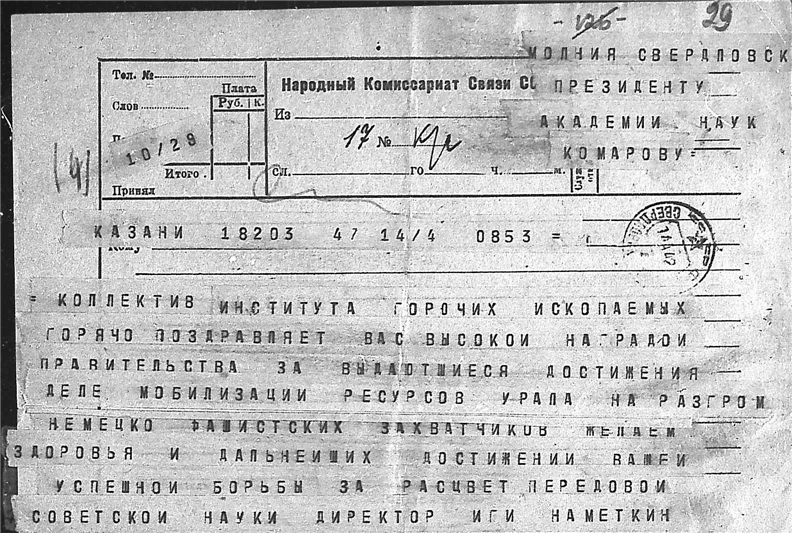 -126- 29
МОЛНИЯ СВЕРДЛОВСК
ПРЕЗИДЕНТУ
АКАДЕМИИ НАУК
КОМАРОВУ=
Тел. №
Плата
Руб. К.
Слов
10/29
Итого.
Принял
Народный Комиссариат Связи СС
Из
17 №
сл. го ч. м.
(4)
КАЗАНИ 18203 47 14/4 0853 =
Кому
= КОЛЛЕКТИВ ИНСТИТУТА ГОРОЧИХ ИСКОПАЕМЫХ
ГОРЯЧО ПОЗДРАВЛЯЕТ ВАС ВЫСОКОИ НАГРАДОИ
ПРАВИТЕЛЬСТВА ЗА ВЫДАЮТШИЕСЯ ДОСТИЖЕНИЯ
ДЕЛЕ МОБИЛИЗАЦИИ РЕСУРСОВ УРАЛА НА РАЗГРОМ
НЕМЕЦКО ФАШИСТСКИХ ЗАХВАТЧИКОВ ЖЕЛАЕМ
ЗДОРОВЬЯ И ДАЛЬНЕИШИХ ДОСТИЖЕНИИ ВАШЕИ
УСПЕШНОИ БОРЬБЫ ЗА РАСЦВЕТ ПЕРЕДОВОИ
СОВЕТСКОИ НАУКИ ДИРЕКТОР ИГИ НАМЕТКИН